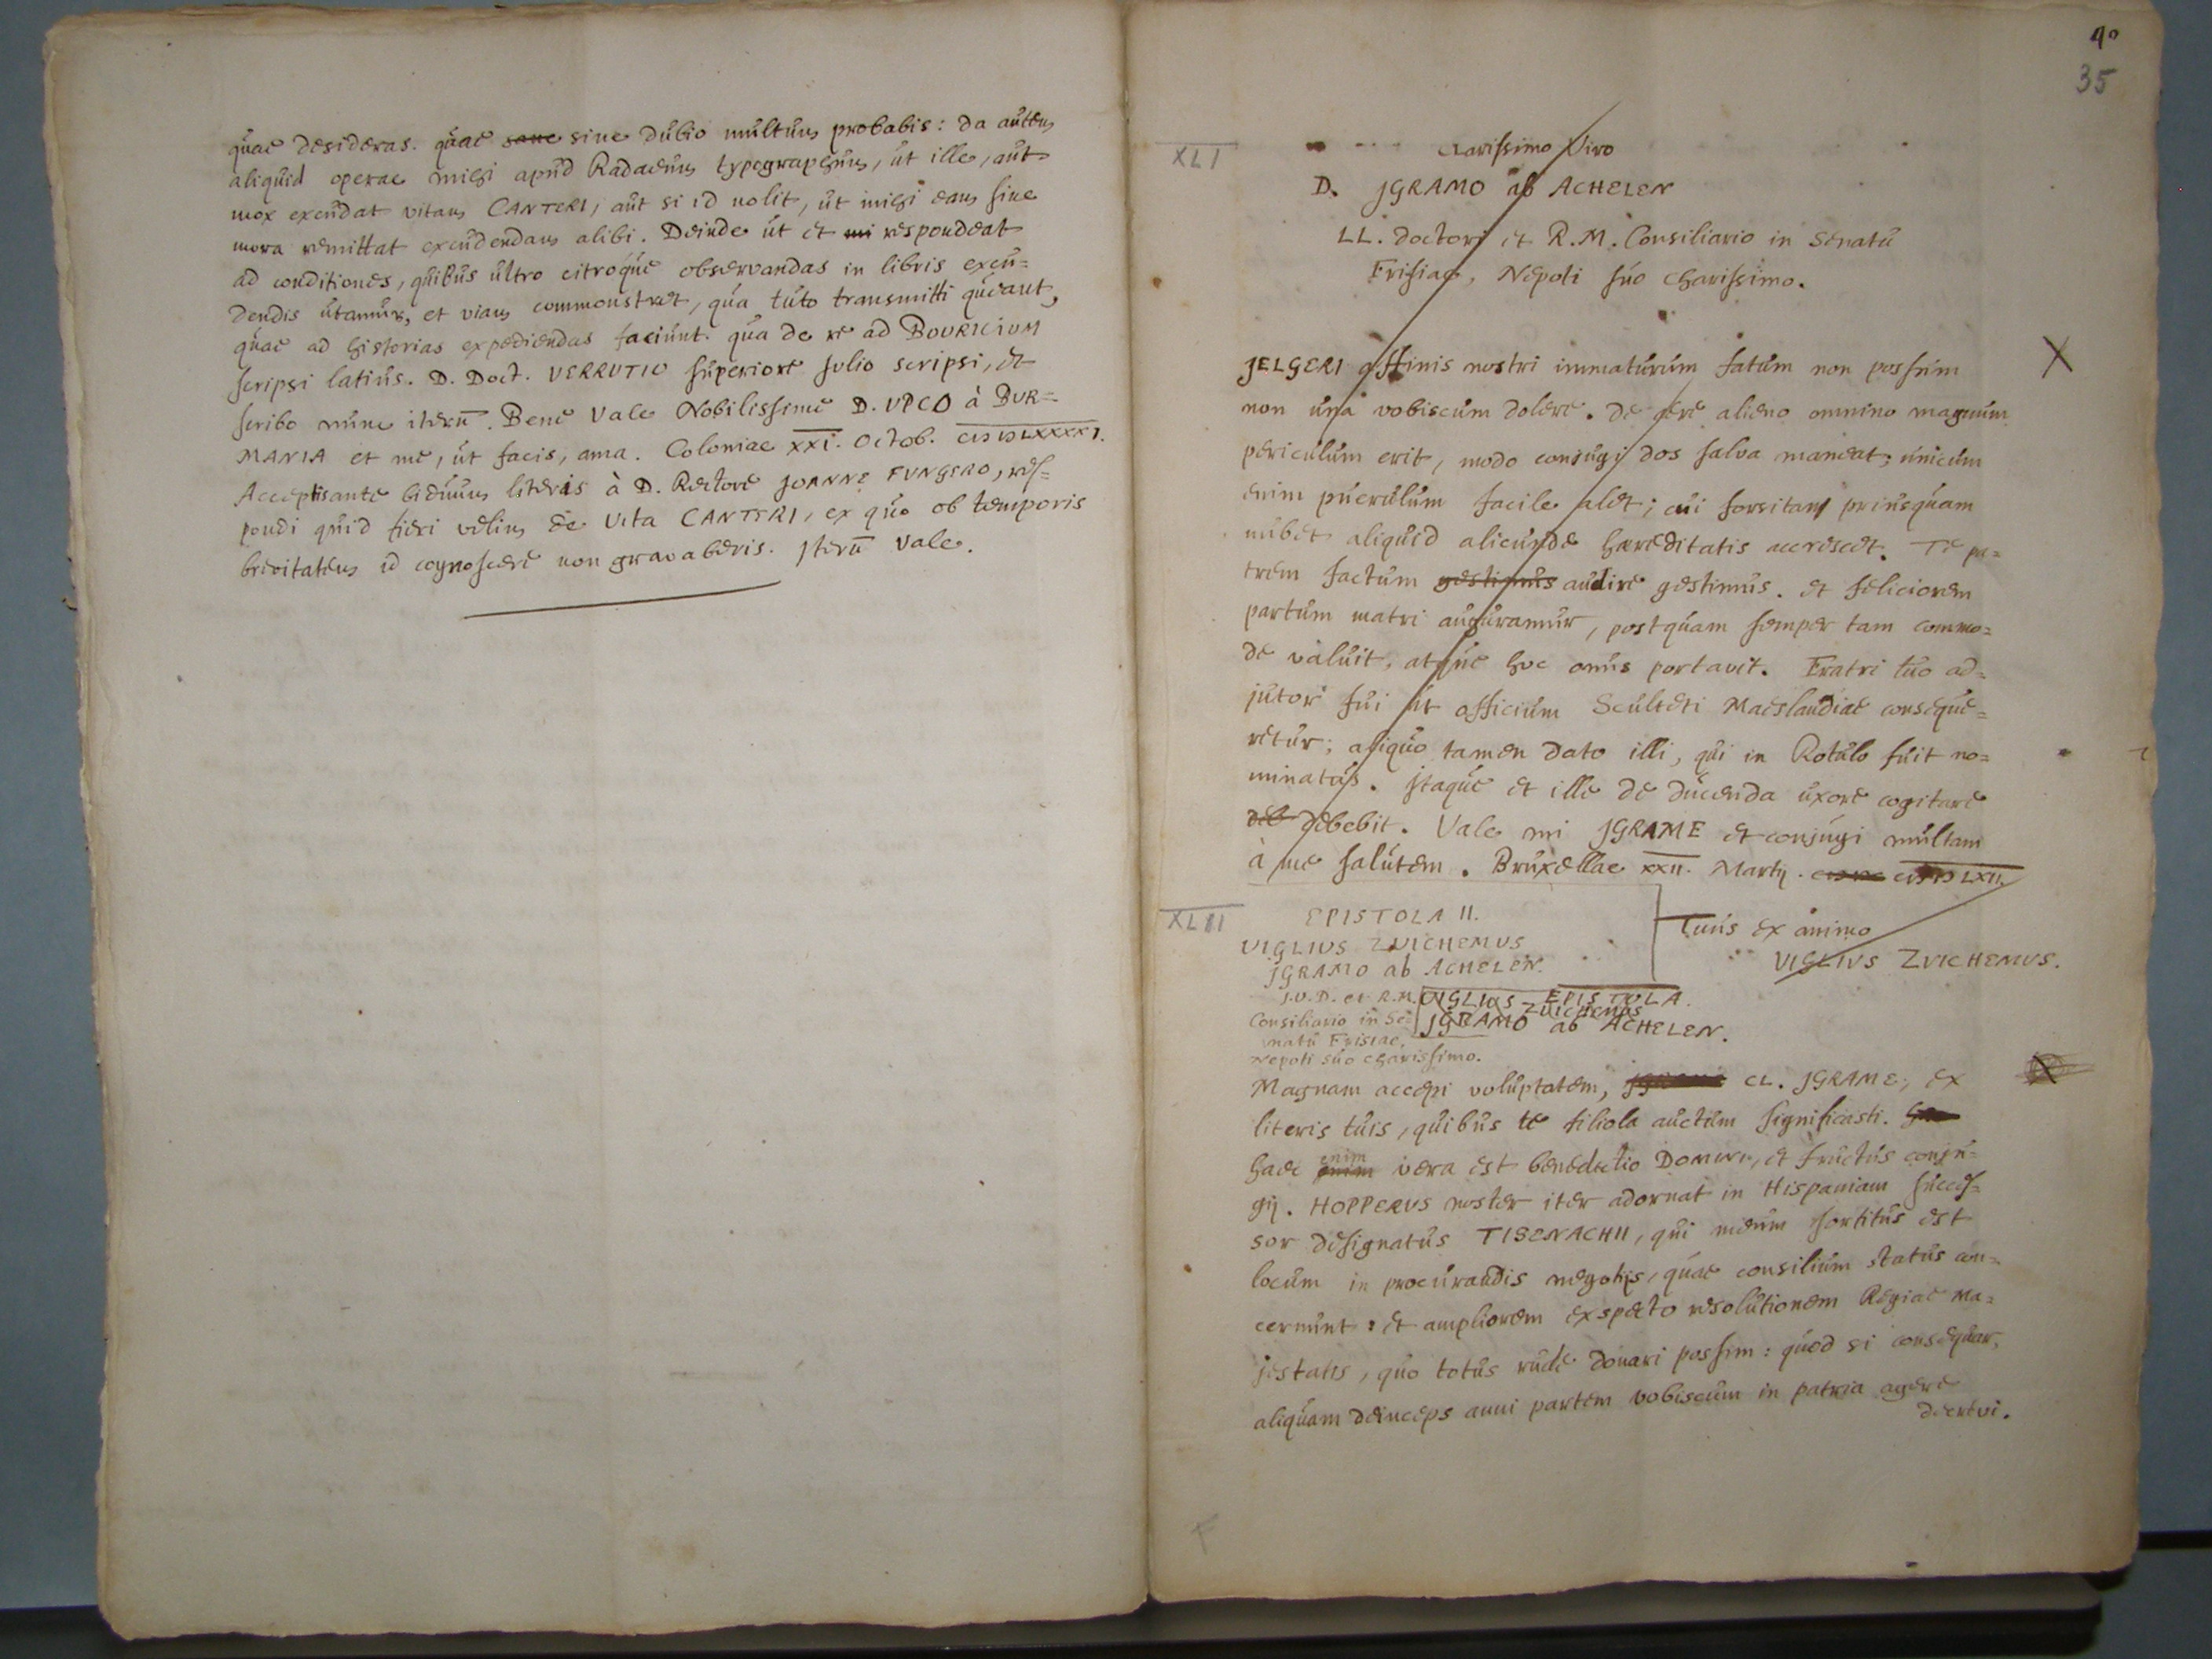 quae desideras. quae sane sine dubio multum probabis: da autem
aliquid operae mihi apud Radaeum typographum, ut ille, aut
mox excudat vitam CANTERI, aut si id nolit, ut mihi eam sine
mora remittat excudendam alibi. Deinde ut et mi respondeat
ad conditiones, quibus ultro citroque observandas in libris excu=
dendis utamur, et viam commonstret, qua tuto transmitti queant,
quae ad historias expediendas faciunt. qua de re ad BOURICIUM
scripsi latius. D. Doct. VERRUTIO superiore Julio scripsi, et
scribo nunc iterū. Bene Vale Nobilissime D. UPCO à BUR=
MANIA et me, ut facis, ama. Coloniae XXI. Octob. CIƆ IƆ LXXXXI.
Acceptis ante biduum literis à D. Rectore JOANNE FUNGERO, res=
pondi quid fieri velim de Vita CANTERI, ex quo ob temporis
brevitatem id cognoscere non gravaberis. Iterū Vale.
40
35
XLI
Clarissimo Viro
D. JGRAMO ab ACHELEN
LL. Doctori et R.M. Consiliario in Senatu
Frisiae, Nepoti suo charissimo.
X
JELGERI affinis nostri immaturum fatum non possum
non una vobiscum dolere. De aere alieno omnino magnum
periculum erit, modo conjugi dos salva maneat; unicum
enim puerulum facile alet; cui forsitan priusquam
nubet aliquid alicunde haereditatis accrescet. Te pa=
trem factum gestimus audire gestimus. et feliciorem
partum matri auguramur, postquam semper tam commo=
de valuit, atque hoc onus portavit. Fratri tuo ad=
jutor fui ut officium Sculteti Maeslandiae conseque=
retur; aliquo tamen dato illi, qui in Rotulo fuit no=
minatus. Itaque et ille de ducenda uxore cogitare
deb debebit. Vale mi JGRAME et conjugi multam
à me salutem. Bruxellae XXII. Martij. CIƆ IƆ LXII.
Tuus ex animo
VIGLIUS ZUICHEMUS.
XLII
EPISTOLA II.
VIGLIUS ZUICHEMUS
JGRAMO ab ACHELEN.
J.U.D. et R.M.
Consiliario in Se=
natu Frisiae,
Nepoti suo charissimo.
EPISTOLA.
VIGLIUS ZUICHEMUS
JGRAMO ab ACHELEN.
X
Magnam accepi voluptatem, CL. JGRAME, ex
literis tuis, quibus te filiola auctum significasti.
haec enim enim vera est benedictio DOMINI, et fructus conju=
gij. HOPPERUS noster iter adornat in Hispaniam succes=
sor designatus TISENACHII, qui meum sortitus est
locum in procurandis negotijs, quae consilium status con=
cernunt: et ampliorem exspecto resolutionem Regiae Ma=
jestatis, quo totus rude donari possim: quod si consequar,
aliquam deinceps anni partem vobiscum in patria agere
decrevi.
F